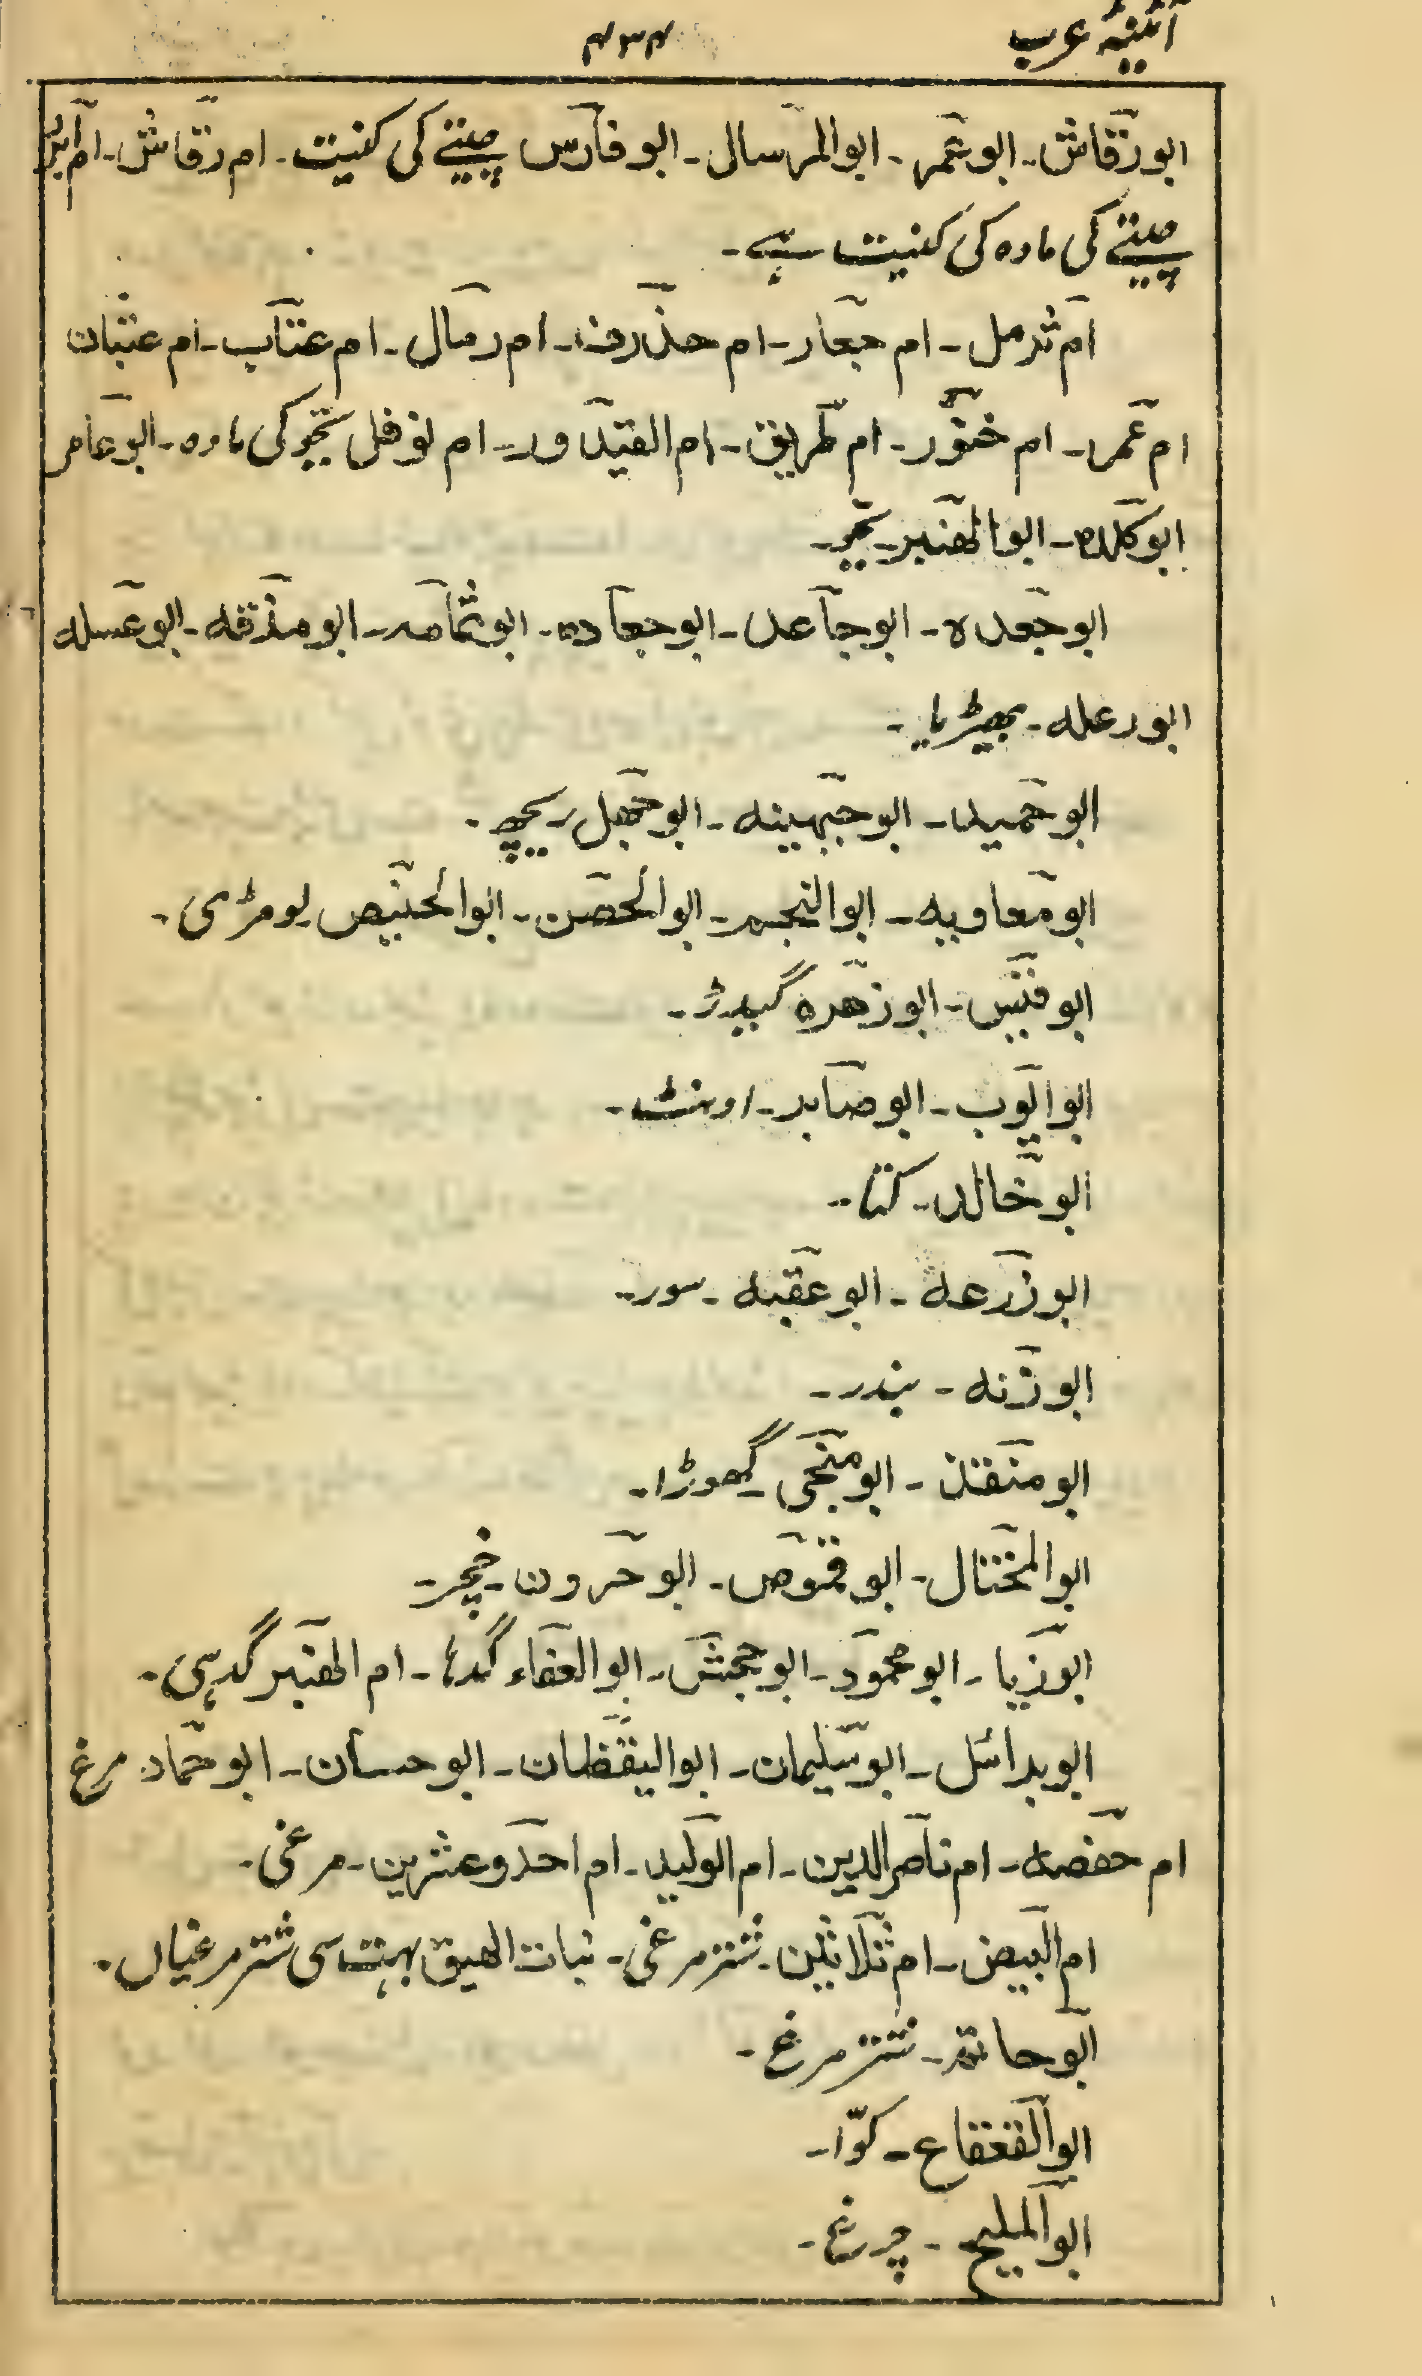 آئینۂ عرب ۴۳۴
ابورقاش۔ ابوعمر۔ ابوالمرسال۔ ابوفارس چیتے کی کنیت۔ ام رقاش۔
چیتے کی مادہ کی کنیت ہے۔
ام ثرمل۔ ام جعار۔ ام حذرف۔ ام رمال۔ ام عتاب۔ ام عتبان
ام عمر۔ ام خنور۔ ام طریق۔ ام القیداور۔ ام نوفل بجو کی مادہ۔ ابوعامر
ابوکلدہ۔ ابوالهنبر۔ بجو۔
ابوجعدہ۔ ابوجاعد۔ ابوجعادہ۔ ابوثمامہ۔ ابومذقہ۔ ابوعسلہ
ابورعلہ۔ بھیڑیا۔
ابوحمید۔ ابوجہینہ۔ ابوجہل ریچھ۔
ابومعاویہ۔ ابوالنجم۔ ابوالحصن۔ ابوالحنبص لومڑی۔
ابوقبیس۔ ابوزهرہ گیدڑ۔
ابوایوب۔ ابوصابر۔ اونٹ۔
ابوخالد۔ کتا۔
ابوزرعہ۔ ابوعقبہ۔ سور۔
ابوزنہ۔ بندر۔
ابومنقذ۔ ابومنجی۔ گھوڑا۔
ابوالمختال۔ ابوقموص۔ ابوحرون۔ خچر۔
ابوزیا۔ ابومحمود۔ ابوجحش۔ ابوالعفاء گدہا۔ ام الهنبر گدہی۔
ابوبرائل۔ ابوسلیمان۔ ابوالیقظان۔ ابوحسان۔ ابوحماد۔ مرغ
ام حفصہ۔ ام ناصرالدین۔ ام الولید۔ ام احدوعشرین۔ مرغی۔
ام البیض۔ ام ثلاثین۔ شترمرغی۔ بنات الهیق بہت سی شترمرغیاں۔
ابوحاتم۔ شترمرغ۔
ابوالقعقاع۔ کوّا۔
ابوالملیح۔ چرغ۔